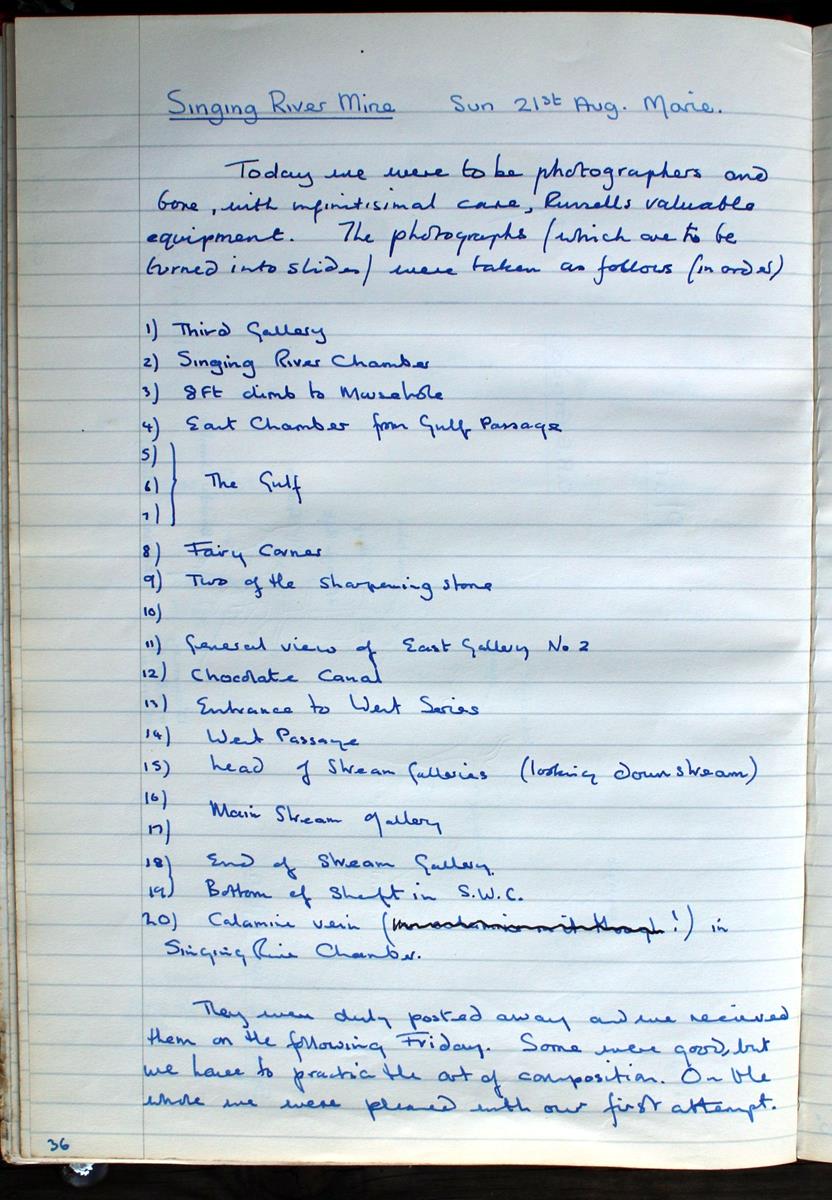 Singing River Mine Sun 21st Aug. Marie.
Today we were to be photographers and
bore, with infinitisimal care, Russells valuable
equipment. The photographs (which are to be
turned into slides) were taken as follows (in order)
1) Third Gallery
2) Singing River Chamber
3) 8ft climb to Mousehole
4) East Chamber from Gulf Passage
5)
6) The Gulf
7)
8) Fairy Corner
9) Two of the sharpening stone
10)
11) General view of East Gallery No 2
12) Chocolate Canal
13) Entrance to West Series
14) West Passage
15) head of Stream Galleries (looking downstream)
16)
Main Stream gallery
17)
18) End of Stream Gallery.
19) Bottom of shaft in S.W.C.
20) Calamine vein ( !) in
Singing River Chamber.
They were duly posted away and we recieved
them on the following Friday. Some were good, but
we have to practice the art of composition. On the
whole we were pleased with our first attempt.
36